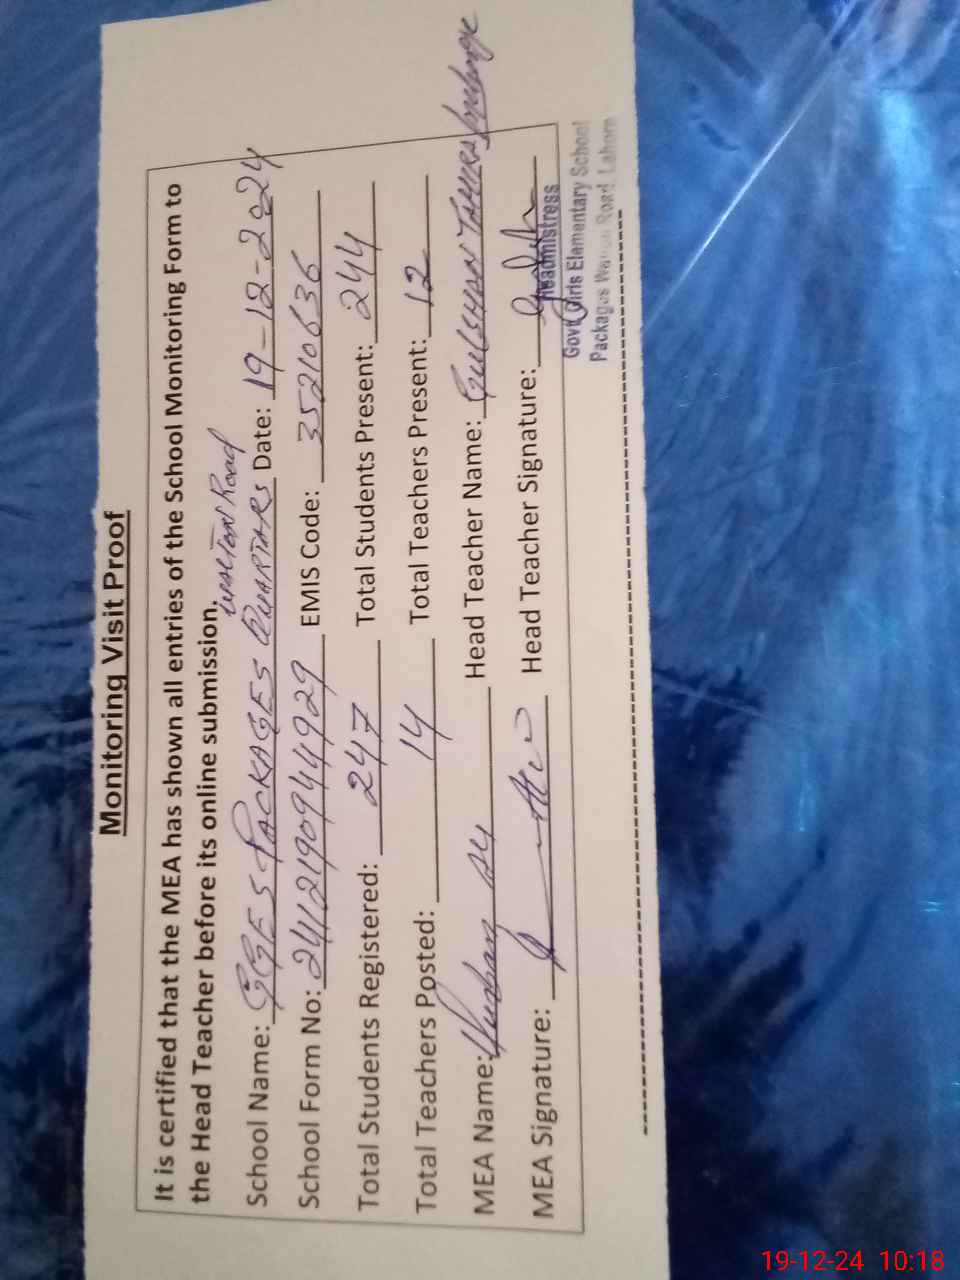 Monitoring Visit Proof
It is certified that the MEA has shown all entries of the School Monitoring Form to
the Head Teacher before its online submission.
Walton Road
School Name: GGES PACKAGES QUARTARS Date: 19-12-2024
School Form No: 241121909444929 EMIS Code: 35210636
Total Students Registered: 247 Total Students Present: 244
Total Teachers Posted: 14 Total Teachers Present: 12
MEA Name: Head Teacher Name: GULSHAN
MEA Signature: Head Teacher Signature:
Headmistress
Govt Girls Elementary School
Packages Walton Road Lahore
19-12-24 10:18